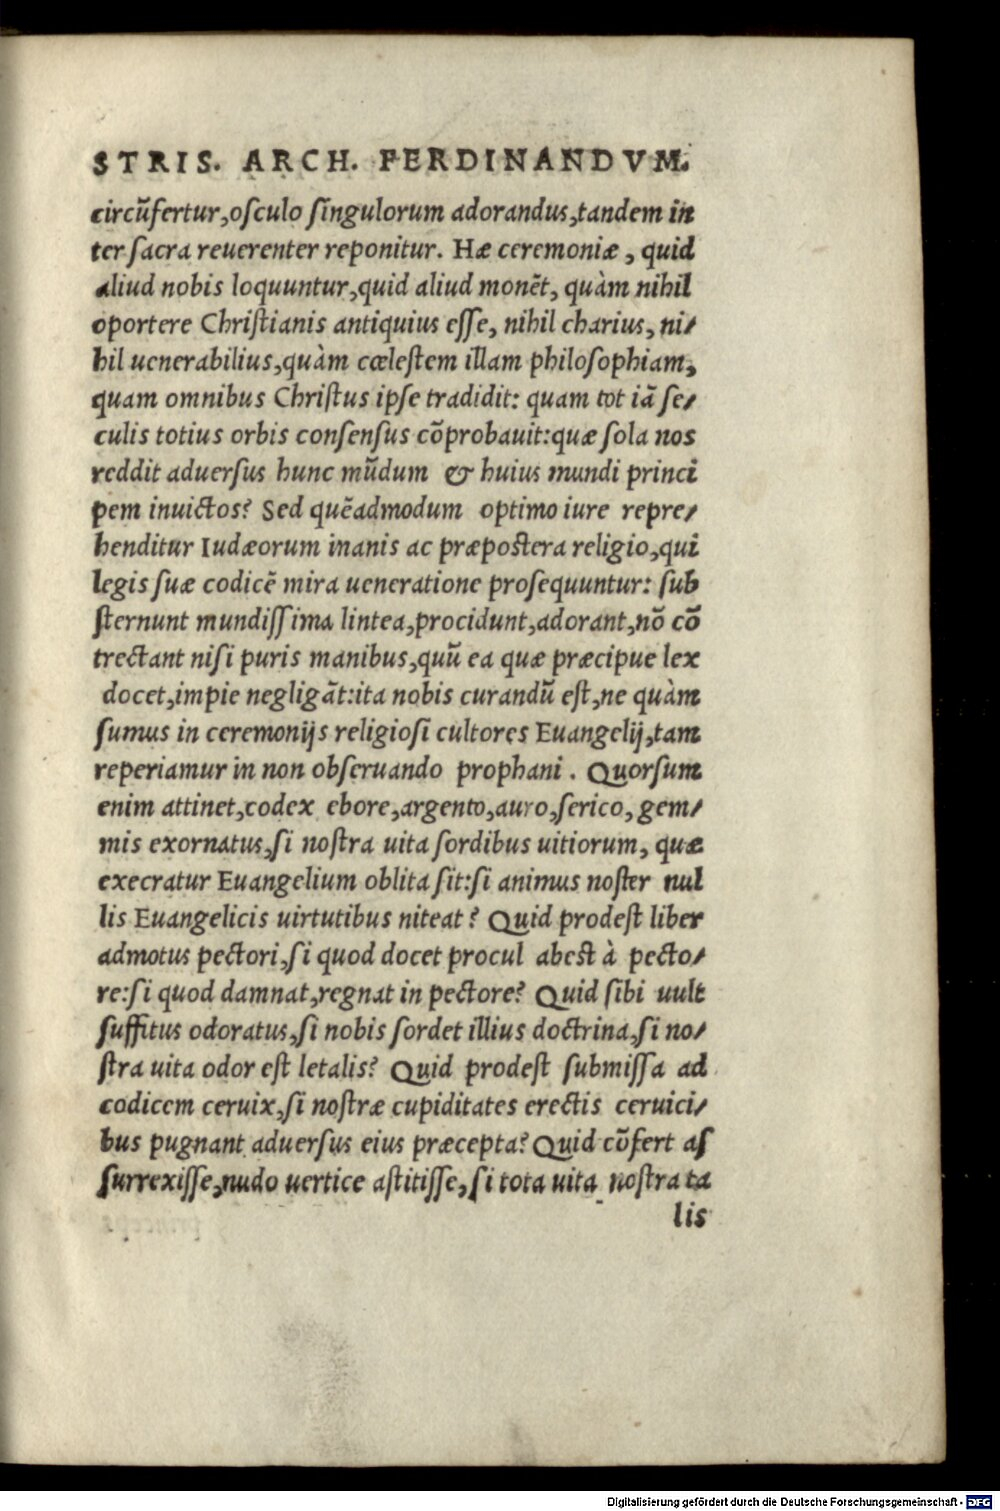 STRIS. ARCH. FERDINANDVM.
circũfertur,osculo singulorum adorandus,tandem in
ter sacra reuerenter reponitur. Hæ ceremoniæ, quid
aliud nobis loquuntur,quid aliud monẽt, quàm nihil
oportere Christianis antiquius esse, nihil charius, ni/
hil uenerabilius,quàm cœlestem illam philosophiam,
quam omnibus Christus ipse tradidit: quam tot iã se/
culis totius orbis consensus cõprobauit:quæ sola nos
reddit aduersus hunc mũdum & huius mundi princi
pem inuictos? Sed quẽadmodum optimo iure repre/
henditur Iudæorum inanis ac præpostera religio,qui
legis suæ codicẽ mira ueneratione prosequuntur: sub
sternunt mundissima lintea,procidunt,adorant,nõ cõ
trectant nisi puris manibus,quũ ea quæ præcipue lex
docet,impie negligãt:ita nobis curandũ est,ne quàm
sumus in ceremonijs religiosi cultores Euangelij,tam
reperiamur in non obseruando prophani. Quorsum
enim attinet,codex ebore,argento,auro,serico, gem/
mis exornatus,si nostra uita sordibus uitiorum, quæ
execratur Euangelium oblita sit:si animus noster nul
lis Euangelicis uirtutibus niteat? Quid prodest liber
admotus pectori,si quod docet procul abest à pecto/
re:si quod damnat,regnat in pectore? Quid sibi uult
suffitus odoratus,si nobis sordet illius doctrina,si no/
stra uita odor est letalis? Quid prodest submissa ad
codicem ceruix,si nostræ cupiditates erectis ceruici/
bus pugnant aduersus eius præcepta? Quid cõfert as
surrexisse,nudo uertice astitisse,si tota uita nostra ta
lis
Digitalisierung gefördert durch die Deutsche Forschungsgemeinschaft - DFG